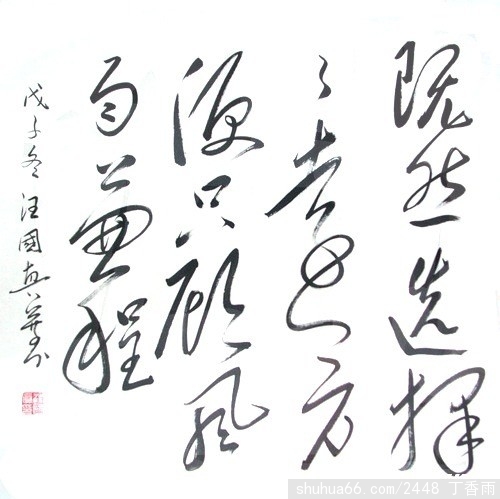 既然选择
了远方
便只顾风
雨兼程
戊子冬汪國真
shuhua66.com/2448 丁香雨